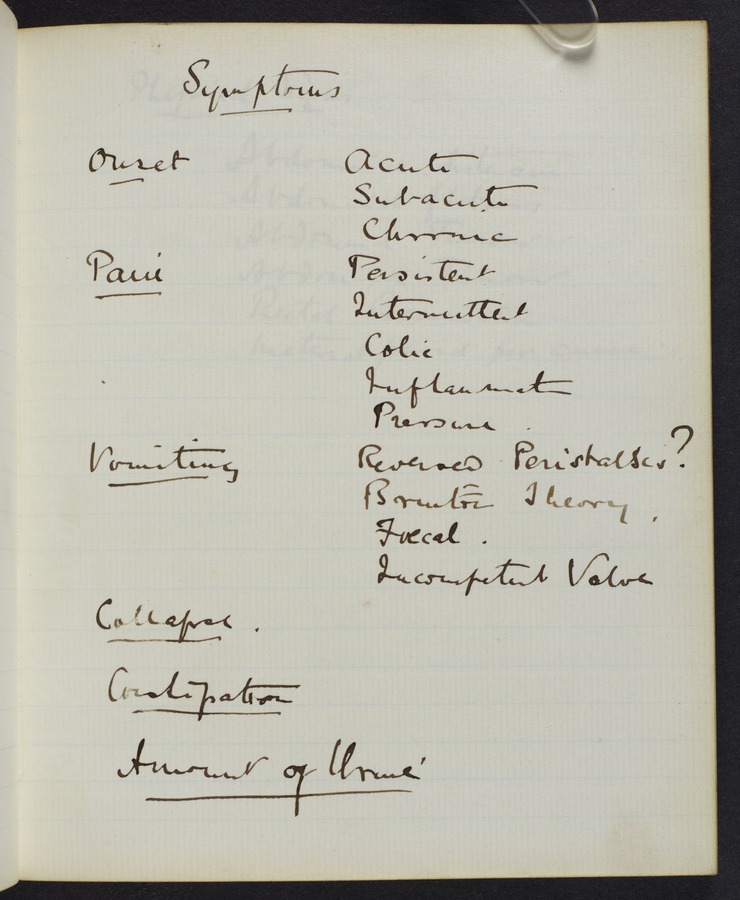 Symptoms
Onset Acute
Subacute
Chronic
Pain Persistent
Intermittent
Colic
Inflammat
Pressure
Vomiting Reversed Peristalsis?
Theory
Foecal.
Incompetent Valve
Collapse.
Constipation
Amount of Urine